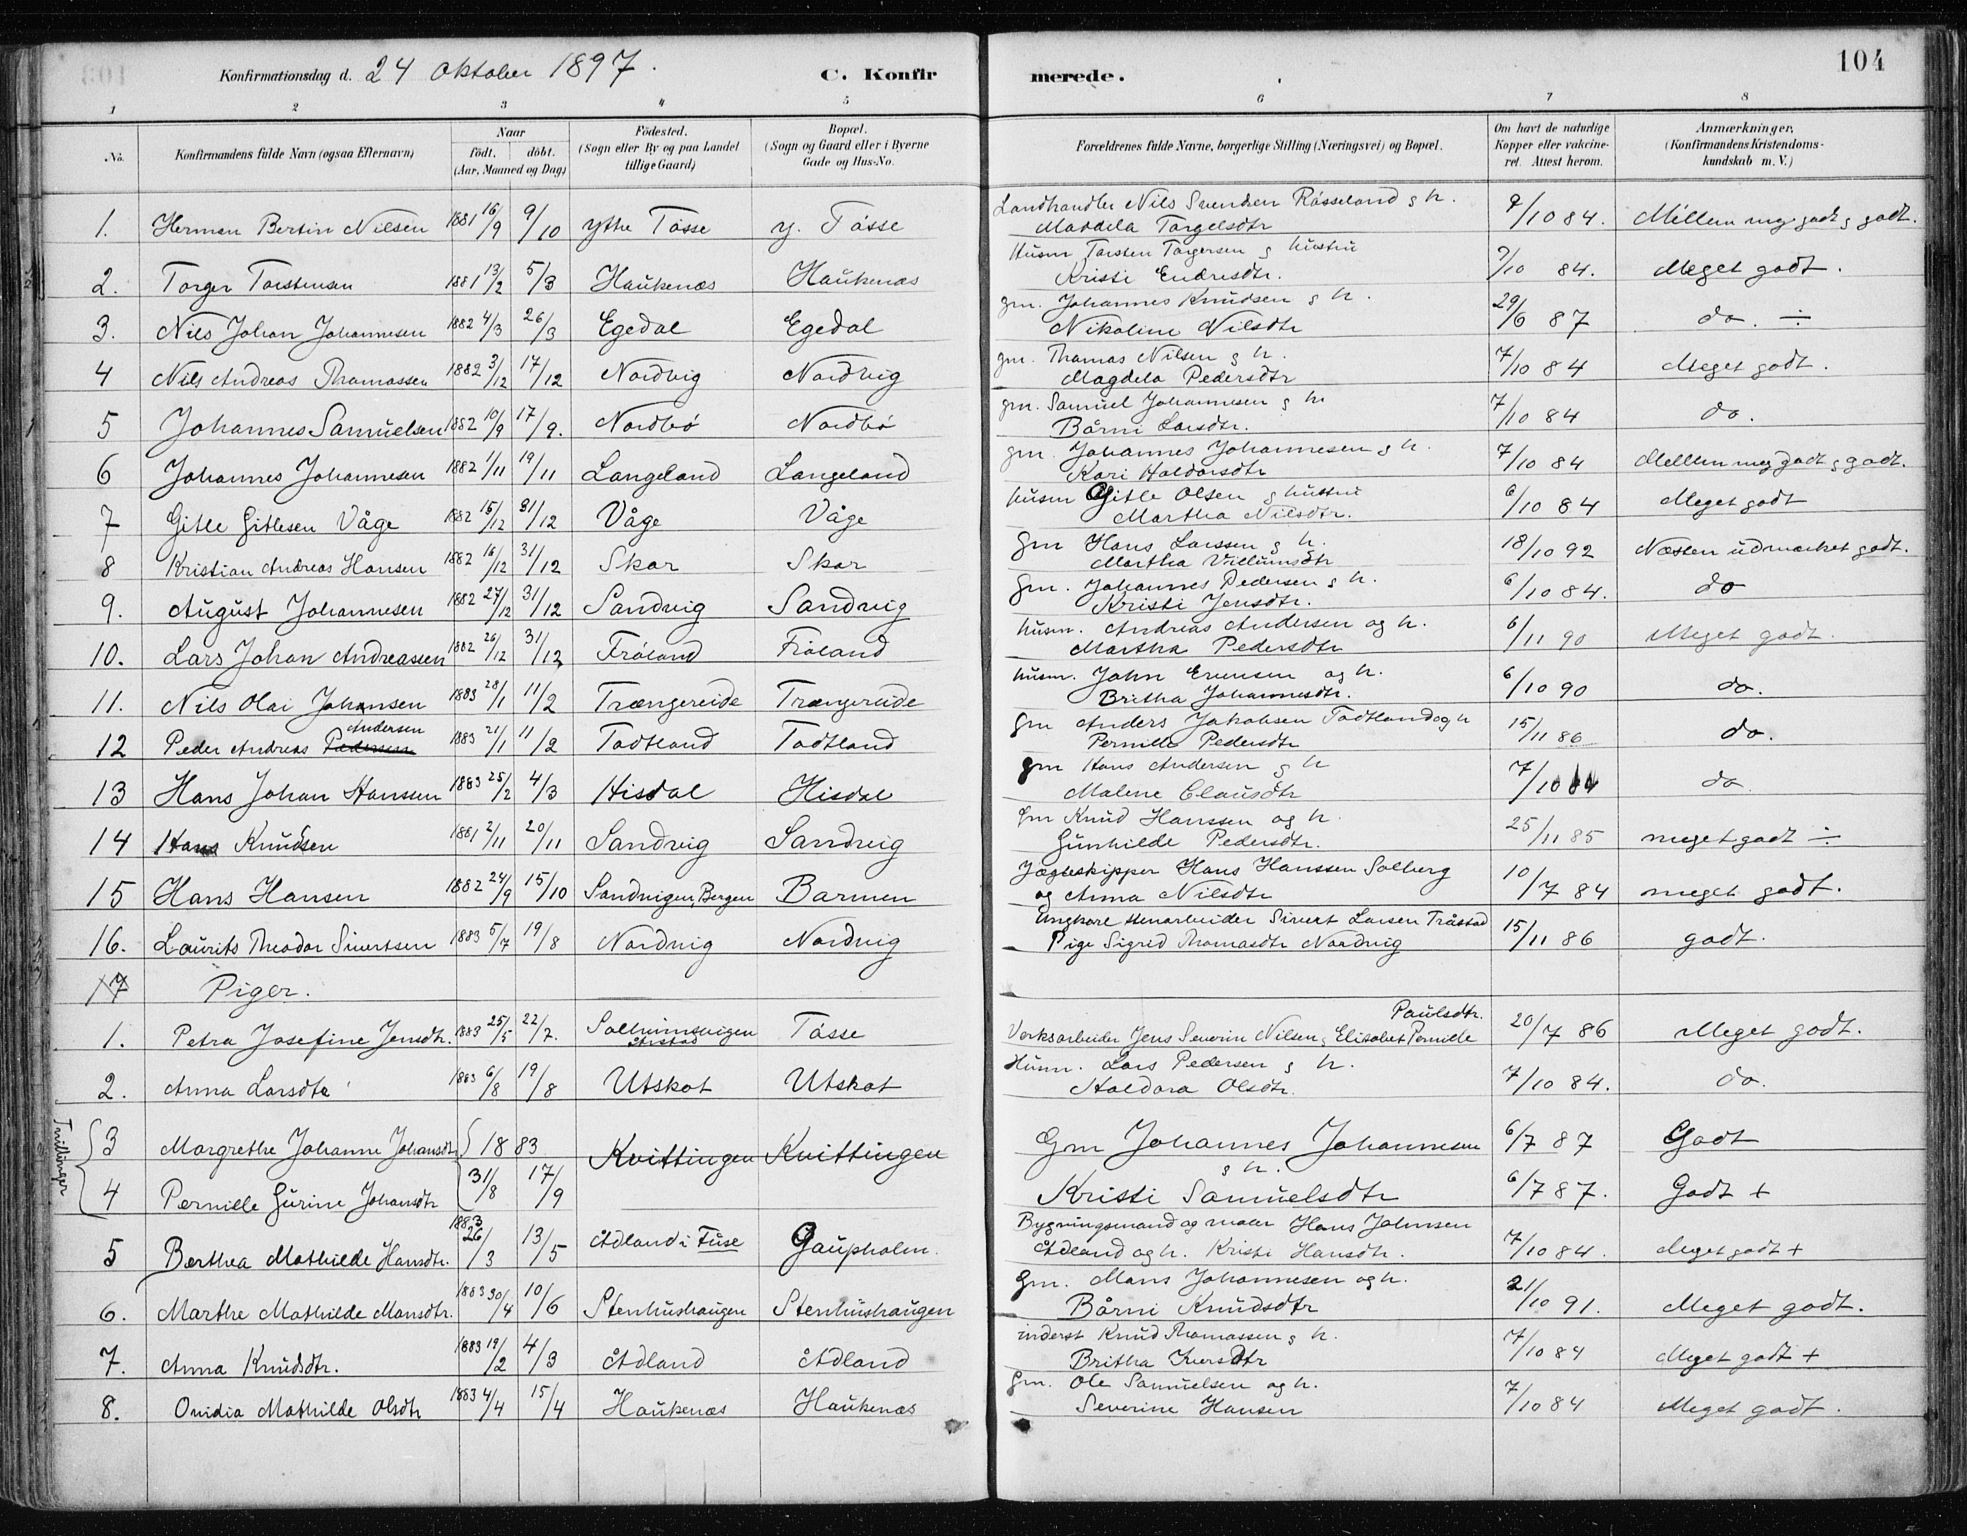 Konfirmationsdag d. 24 Oktober 1897. C. Konfirmerede. 104
1 2 3 4 5 6 7 8
No. Konfirmandens fulde Navn (ogsaa Efternavn) Naar født, døbt. (Aar, Maaned og Dag) Fødested. (Sogn eller By og paa Landet tillige Gaard) Bopæl. (Sogn og Gaard eller i Byerne Gade og Hus-No. Forældrenes fulde Navne, borgerlige Stilling (Næringsvei) og Bopæl. Om havt de naturlige Kopper eller vakcineret. Attest herom. Anmærkninger, (Konfirmandens Kristendomskundskab m. V.)
1. Herman Bertin Nilsen 1881 16/9 9/10 ytre Tøsse y. Tøsse Landhandler Nils Svendsen Røsseland g h. Magdela Torgelsdtr 9/10 84. Mellem meg. godt g godt.
2. Torger Torstensen 1881 13/2 5/3 Haukenæs Haukenæs Husm Torsten Torgersen g hustru Kristi Endresdtr. 9/10 84. Meget godt.
3. Nils Johan Johannesen 1882 4/3 26/3 Egedal Egedal gm. Johannes Knudsen g h. Nikoline Nilsdtr 29/6 87 do. ÷
4 Nils Andreas Thomassen 1882 3/12 17/12 Nordvig Nordvig gm. Thomas Nilsen g h. Magdela Pedersdtr 7/10 84 Meget godt.
5 Johannes Samuelsen 1882 10/9 17/9. Nordbø Nordbø gm. Samuel Johannesen g h Bårni Larsdtr. 7/10 84 do.
6 Johannes Johannesen 1882 1/11 19/11 Langeland Langeland gm. Johannes Johannesen g h. Kari Haldorsdtr 7/10 84 Mellem meg godt g godt.
7 Gitle Gitlesen Våge 1882 15/12 31/12 Våge Våge husm Gitle Olsen g hustru Martha Nilsdtr. 6/10 84 Meget godt
8 Kristian Andreas Hansen 1882 16/12 31/12 Skar Skar gm Hans Larssen g h. Martha Villumsdtr 18/10 92 Næsten udmærket godt.
9. August Johannesen 1882 27/12 31/12 Sandvig Sandvig gm. Johannes Pedersen g h. Kristi Jensdtr. 6/10 84. do
10. Lars Johan Andreassen 1882 26/12 31/12 Frøland Frøland husm. Andreas Andersen og h. Martha Pedersdtr 6/11 90 Meget godt.
11. Nils Olai Johansen 1883 28/1 11/2 Trængereide Trængereide husm. John Evensen og h. Britha Johannesdtr. 6/10 90 do.
12 Peder Andreas Pedersen Andersen 1883 21/1 11/2 Todtland Todtland gm Anders Jakobsen Todtland og h Pernille Pedersdtr 15/11 86 do.
13 Hans Johan Hansen 1883 25/2 4/3 Hisdal Hisdal gm Hans Andersen g h Malene Clausdtr 7/10 84 do
14 Hans Knudsen 1881 2/11 20/11 Sandvig Sandvig gm Knud Hanssen og h. Gunhilde Pedersdtr. 25/11 85 meget godt ÷
15 Hans Hansen 1882 24/9 15/10 Sandvigen, Bergen Barmen Jægteskipper Hans Hanssen Solberg og Anna Nilsdtr 10/7 84 meget godt.
16. Laurits Theodor Sivertsen 1883 5/7 19/8 Nordvig Nordvig Ungkarl stenarbeider Sivert Larsen Tråstad Pige Sigrid Thomasdtr Nordvig 15/11 86 godt.
17 Piger.
1. Petra Josefine Jensdtr. 1883 25/5 22/7. Solheimsvigen Årstad Tøsse Verksarbeider Jens Severin Nilsen g Elisabet Pernille Paulsdtr. 20/7 86 Meget godt.
2. Anna Larsdtr 1883 6/8 19/8 Utskot Utskot Husm. Lars Pedersen g h. Haldora Olsdtr. 7/10 84. do.
Tvillinger
3 Margrethe Johanne Johansdtr 1883 31/8 17/9 Kvittingen Kvittingen Gm Johannes Johannesen g h. 6/7 87 Godt
4 Pernille Gurine Johansdtr Kristi Samuelsdtr 6/7 87. Godt +
5 Berthea Mathilde Hansdtr. 1883 26/3 13/5 Ådland i Fuse Gaupholm. Bygningsmand og maler Hans Johnsen Ådland og h. Kristi Hansdtr. 7/10 84. Meget godt +
6. Marthe Mathilde Monsdtr. 1883 30/4 10/6 Stenhushaugen Stenhushaugen Gm. Mons Johannesen og h. Bårni Knudsdtr 21/10 91. Meget godt.
7. Anna Knudsdtr. 1883 19/2 4/3 Ådland Ådland inderst Knud Thomassen g h. Britha Iversdtr 7/10 84 Meget godt +
8. Ovidia Mathilde Olsdtr 1883 4/4 15/4 Haukenæs Haukenæs Gm. Ole Samuelsen og h. Severine Hansen 7/10 84 Meget godt.